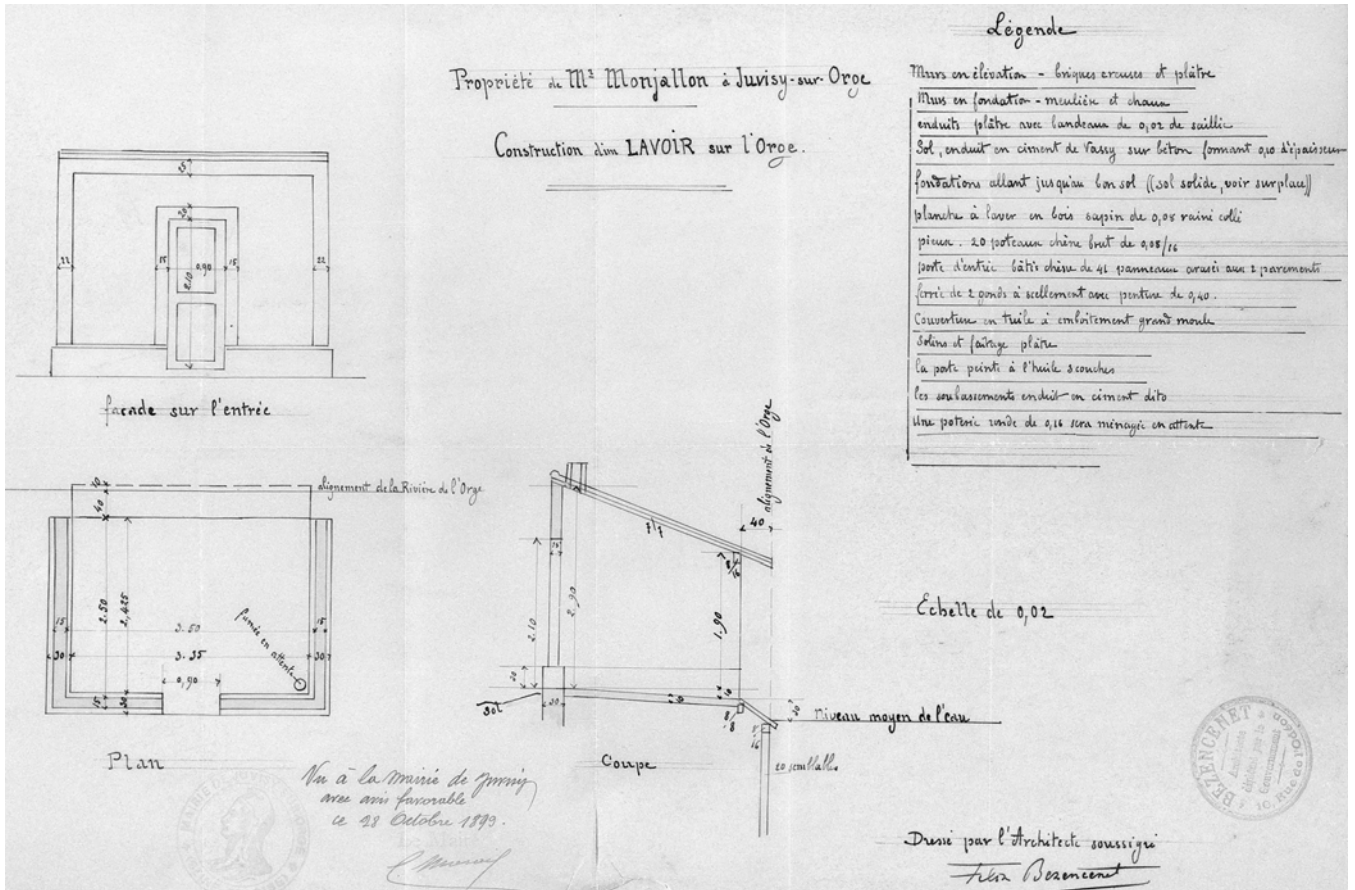 Légende
Propriété de Mr Monjallon à Juvisy-sur-Orge
Construction d'un LAVOIR sur l'Orge.
Murs en élévation - briques creuses et plâtre
Murs en fondation - meulière et chaux
enduits plâtre avec bandeaux de 0,02 de saillie
Sol, enduit en ciment de Vassy sur béton formant 0,10 d'épaisseur
fondations allant jusqu'au bon sol ((sol solide, voir surplace))
planche à laver en bois sapin de 0,08 rainé collé
pieux. 20 poteaux chêne brut de 0,08/16
porte d'entrée bâtis chêne de 41 panneaux arasés aux 2 parements
ferrée de 2 gonds à scellement avec penture de 0,40.
Couverture en tuile à emboitement grand moule
Solins et faîtage plâtre
la porte peinte à l'huile 3 couches
les soubassements enduit en ciment dito
Une poterie ronde de 0,16 sera ménagée en attente
25
20
22
15
0,90
15
22
2.10
façade sur l'entrée
alignement de la Rivière de l'Orge
10
40
2.50
2,425
15
3.50
15
30
3.35
30
fumée en attente
0,90
15
30
Plan
alignement de l'Orge
40
7/7
8/16
15
2.10
2.90
1.90
20
10
10
Sol
30
8/8
30
Niveau moyen de l'eau
20 semblables
Coupe
Echelle de 0,02
Vu à la mairie de Juvisy
avec avis favorable
ce 28 Octobre 1899.
MAIRIE DE JUVISY
BEZENCENET
Architecte
Diplômé par le
Gouvernement
Dressé par l'Architecte soussigné
Félix Bezencenet